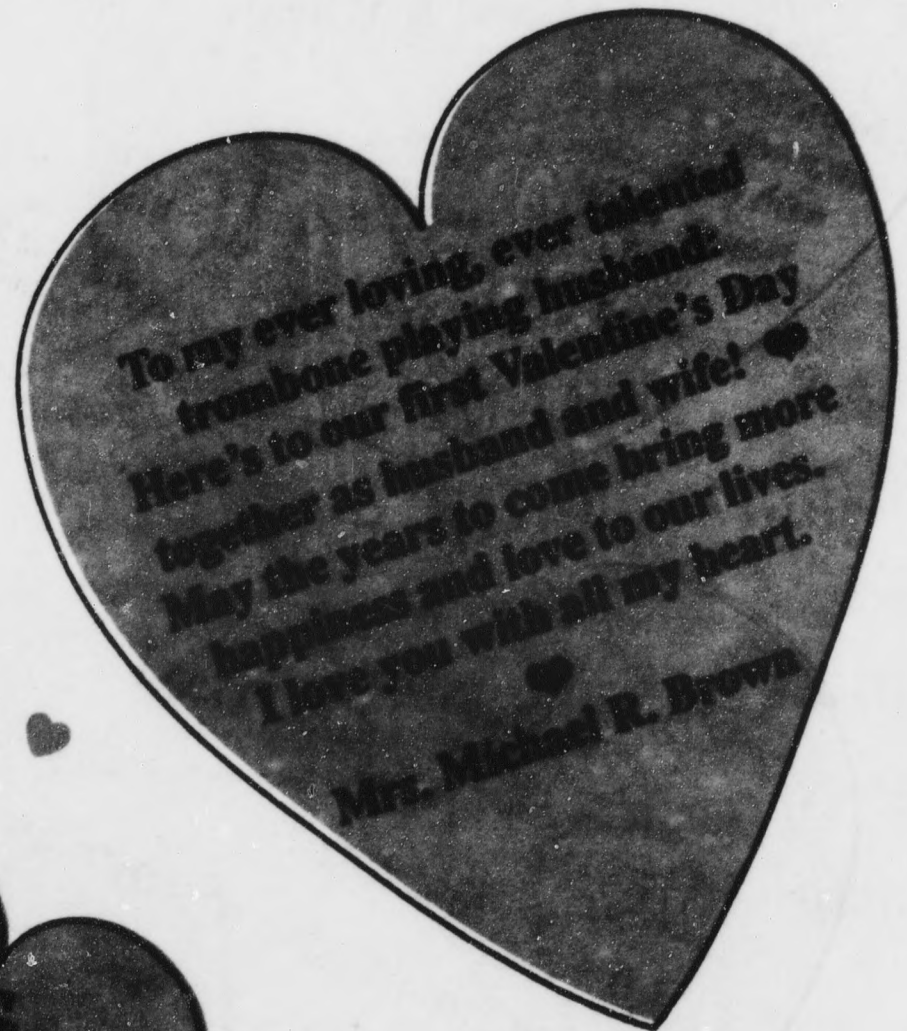 To my ever loving, ever talented
trombone playing husband:
Here's to our first Valentine's Day
together as husband and wife! ♥
May the years to come bring more
happiness and love to our lives.
I love you with all my heart.
♥
Mrs. Michael R. Brown